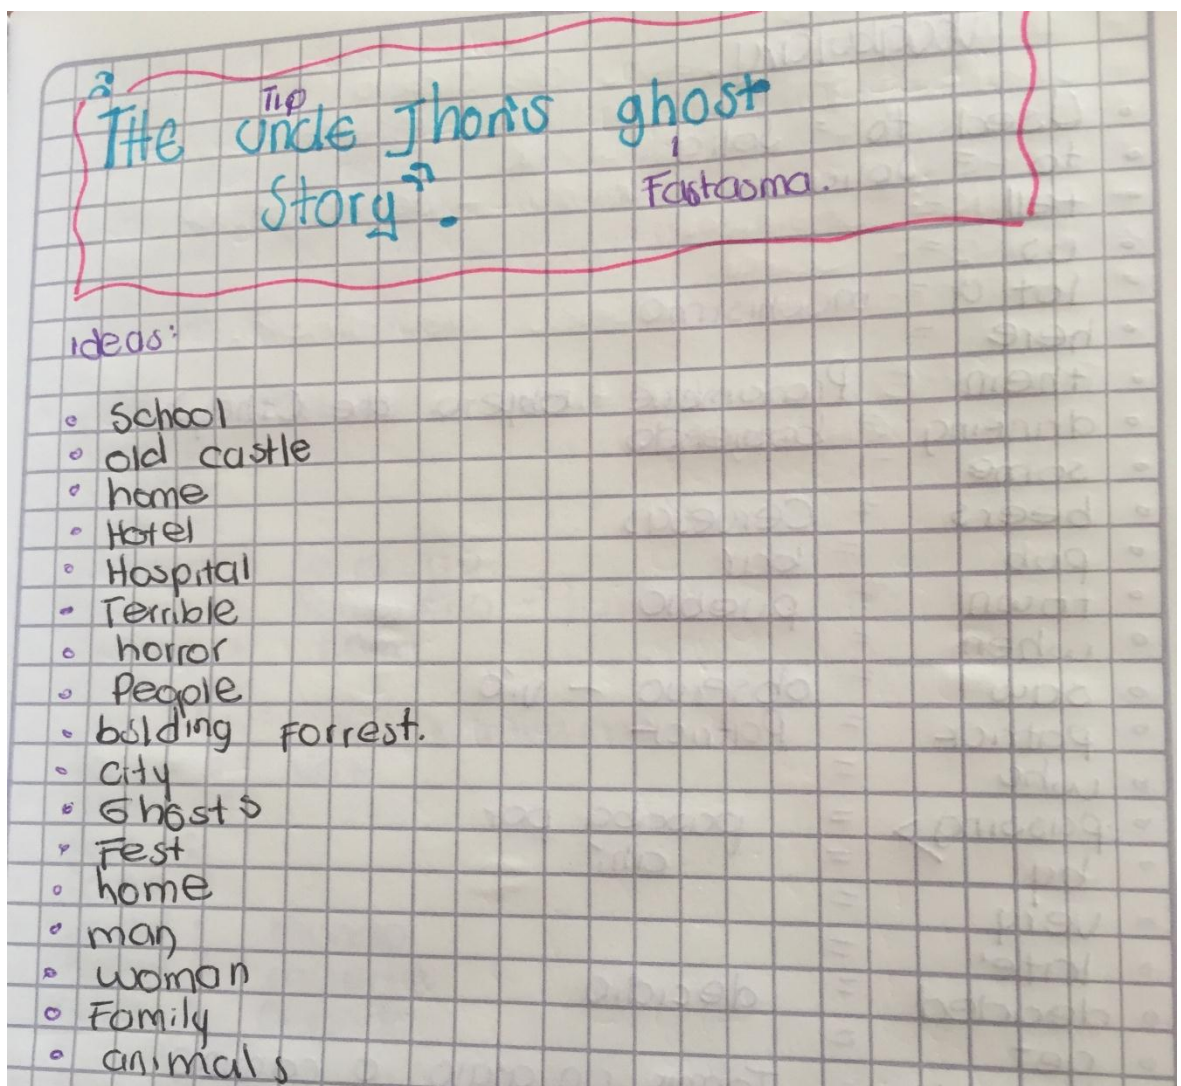 "THE UncLE Jhon's ghost
Tio
Story".
Fastasma.
ideas:
• School
• old castle
• home
• Hotel
• Hospital
• Terrible
• horror
• People
• bulding Forrest.
• city
• Ghosts
• Fest
• home
• man
• woman
• Family
• animals